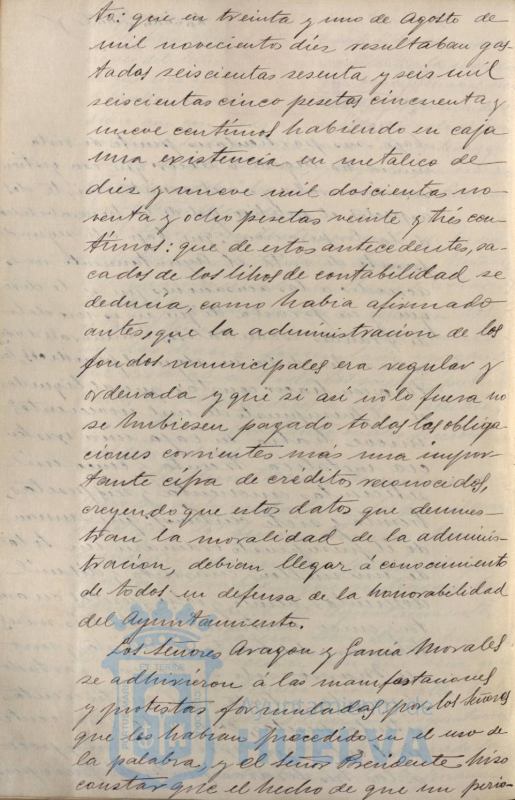 to: que en treinta y uno de Agosto de
mil novecientos diez resultaban gas-
tadas seiscientas sesenta y seis mil
seiscientas cinco pesetas cincuenta y
nueve centimos habiendo en caja
una existencia en metalico de
diez y nueve mil doscientas no-
venta y ocho pesetas veinte y trés cen-
timos: que de estos antecedentes, sa-
cados de los libros de contabilidad se
deducia, como habia afirmado
antes, que la administracion de los
fondos municipales era regular y
ordenada y que si así no lo fuera no
se hubiesen pagado todas las obliga-
ciones corrientes más una impor-
tante cifra de créditos reconocidos,
creyendo que estos datos que demues-
tran la moralidad de la adminis-
tracion, debian llegar á conocimiento
de todos en defensa de la honorabilidad
del Ayuntamiento.
Los Señores Aragon y Garcia Morales
se adhirieron á las manifestaciones
y protestas formuladas por los Señores
que les habian precedido en el uso de
la palabra, y el Señor Presidente hizo
constar que el hecho de que un perio-
HUELVA